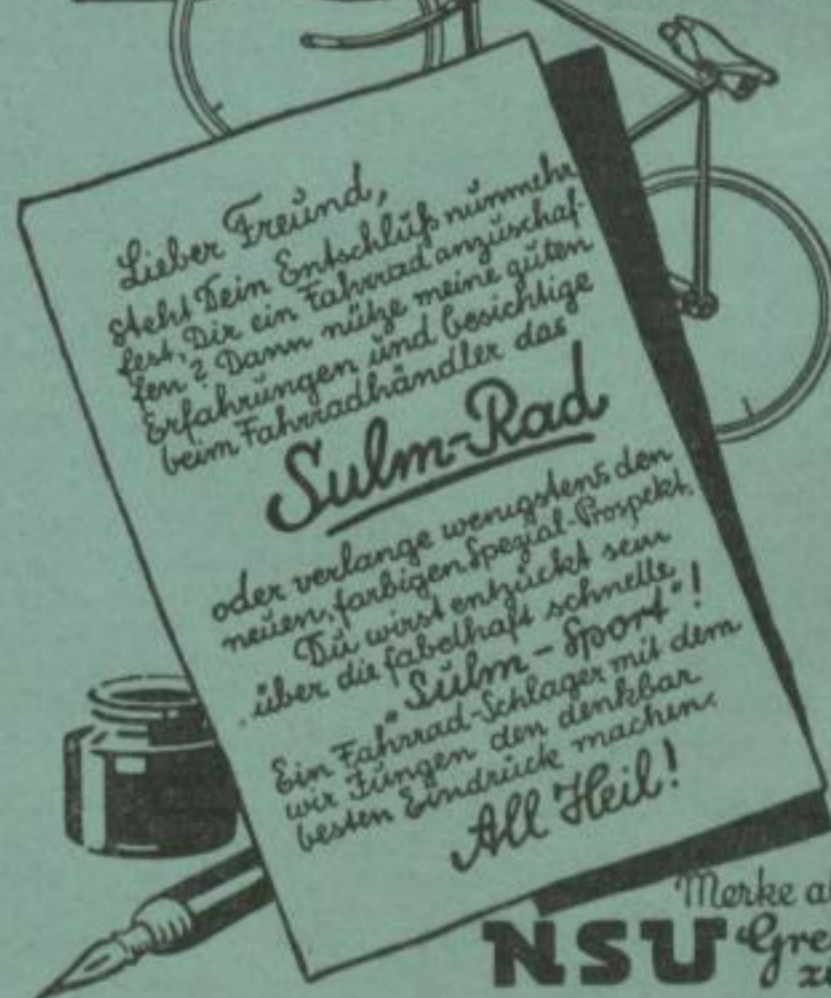 Lieber Freund,
steht Dein Entschluß nunmehr
fest, Dir ein Fahrrad anzuschaf-
fen? Dann nütze meine guten
Erfahrungen und besichtige
beim Fahrradhändler das
Sulm-Rad
oder verlange wenigstens den
neuen, farbigen Spezial-Prospekt.
Du wirst entzückt sein
über die fabelhaft schnelle
"Sulm-Sport"!
Ein Fahrrad-Schlager mit dem
wir Jungen den denkbar
besten Eindruck machen.
All Heil!
Merke
NSU